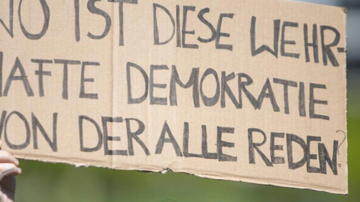 WO IST DIESE WEHR-
HAFTE DEMOKRATIE
VON DER ALLE REDEN?